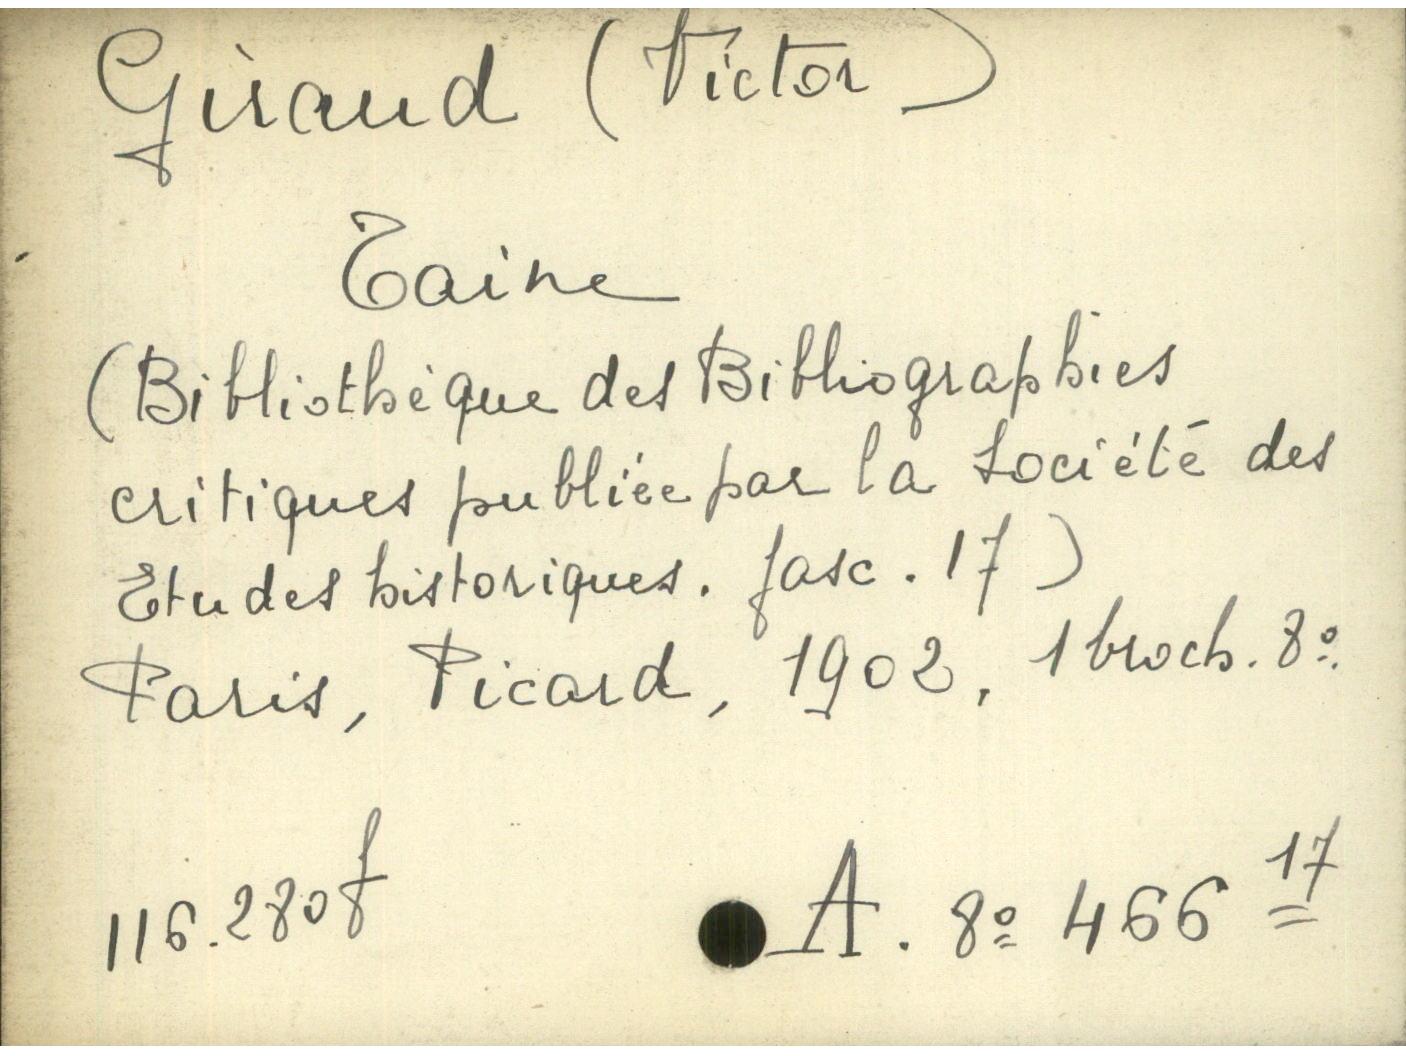 Giraud (Victor)
Taine
(Bibliothèque des Bibliographies
critiques publiée par la Société des
Etudes historiques. fasc. 17)
Paris, Picard, 1902, 1 broch. 8º.
116.280 f
A. 8º 466 17